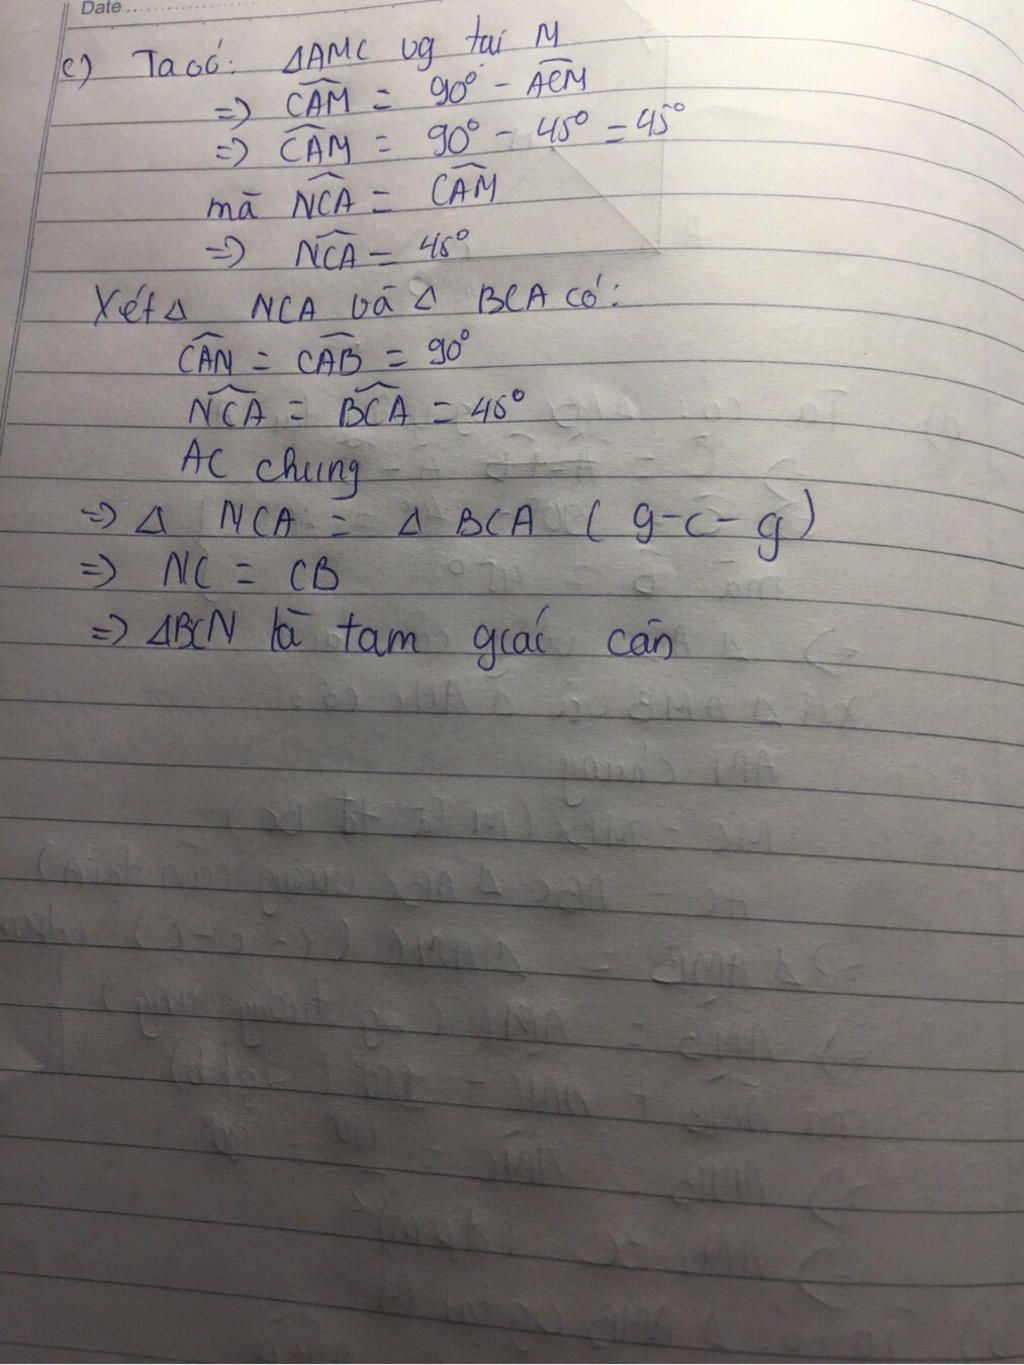 Date
c) Ta có: ΔAMC vg tại M
=> \widehat{CAM} = 90° - \widehat{ACM}
=> \widehat{CAM} = 90° - 45° = 45°
mà \widehat{NCA} = \widehat{CAM}
=> \widehat{NCA} = 45°
Xét Δ NCA và Δ BCA có:
\widehat{CAN} = \widehat{CAB} = 90°
\widehat{NCA} = \widehat{BCA} = 45°
AC chung
=> Δ NCA = Δ BCA ( g-c-g)
=> NC = CB
=> ΔBCN là tam giác cân